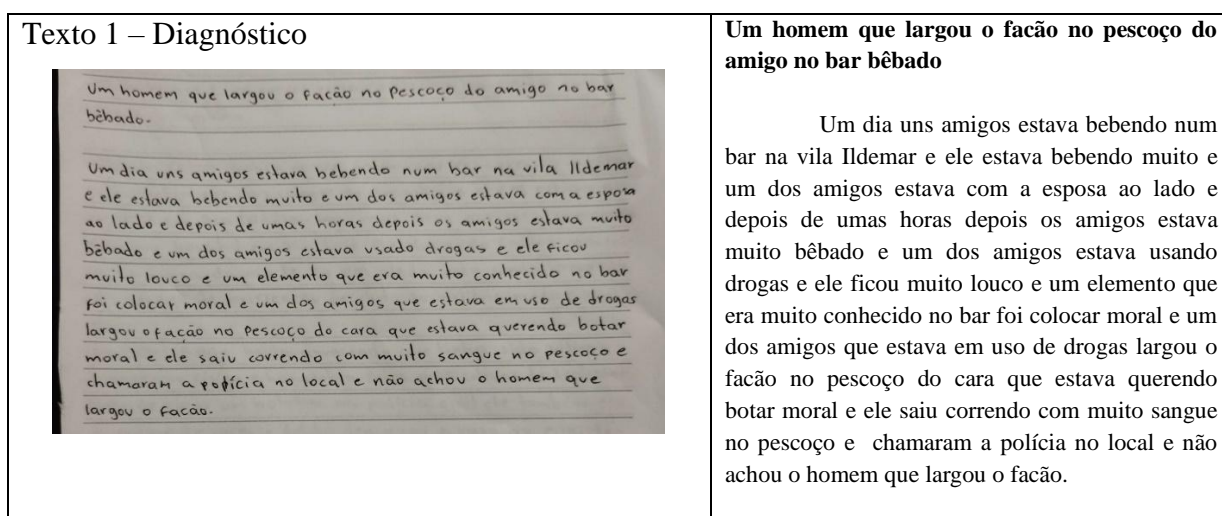 Texto 1 – Diagnóstico
Um homem que largou o facão no pescoço do amigo no bar
bêbado.
Um dia uns amigos estava bebendo num bar na vila Ildemar
e ele estava bebendo muito e um dos amigos estava com a esposa
ao lado e depois de umas horas depois os amigos estava muito
bêbado e um dos amigos estava usado drogas e ele ficou
muito louco e um elemento que era muito conhecido no bar
foi colocar moral e um dos amigos que estava em uso de drogas
largou o facão no pescoço do cara que estava querendo botar
moral e ele saiu correndo com muito sangue no pescoço e
chamaram a polícia no local e não achou o homem que
largou o facão.
Um homem que largou o facão no pescoço do
amigo no bar bêbado
Um dia uns amigos estava bebendo num
bar na vila Ildemar e ele estava bebendo muito e
um dos amigos estava com a esposa ao lado e
depois de umas horas depois os amigos estava
muito bêbado e um dos amigos estava usando
drogas e ele ficou muito louco e um elemento que
era muito conhecido no bar foi colocar moral e um
dos amigos que estava em uso de drogas largou o
facão no pescoço do cara que estava querendo
botar moral e ele saiu correndo com muito sangue
no pescoço e chamaram a polícia no local e não
achou o homem que largou o facão.